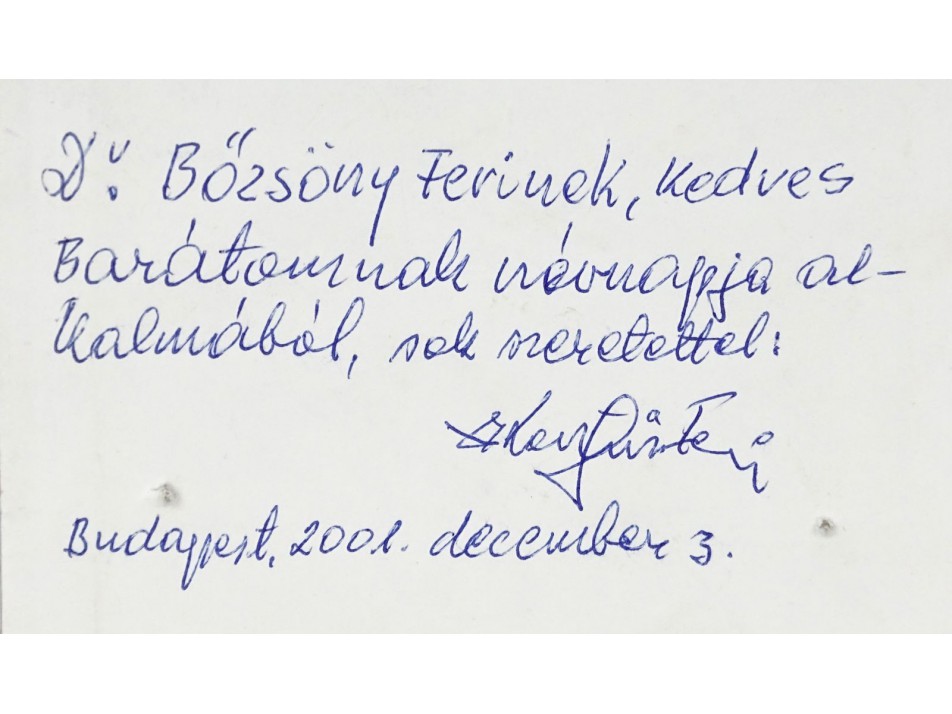 Dr. Bőzsöny Ferinek, kedves
Barátomnak névnapja al-
kalmából, sok szeretettel:
Budapest, 2001. december 3.